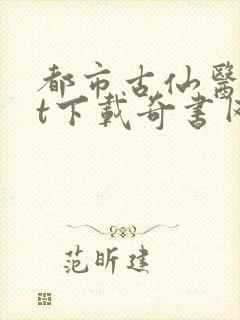 都市古仙醫
t下載奇書
范昕建